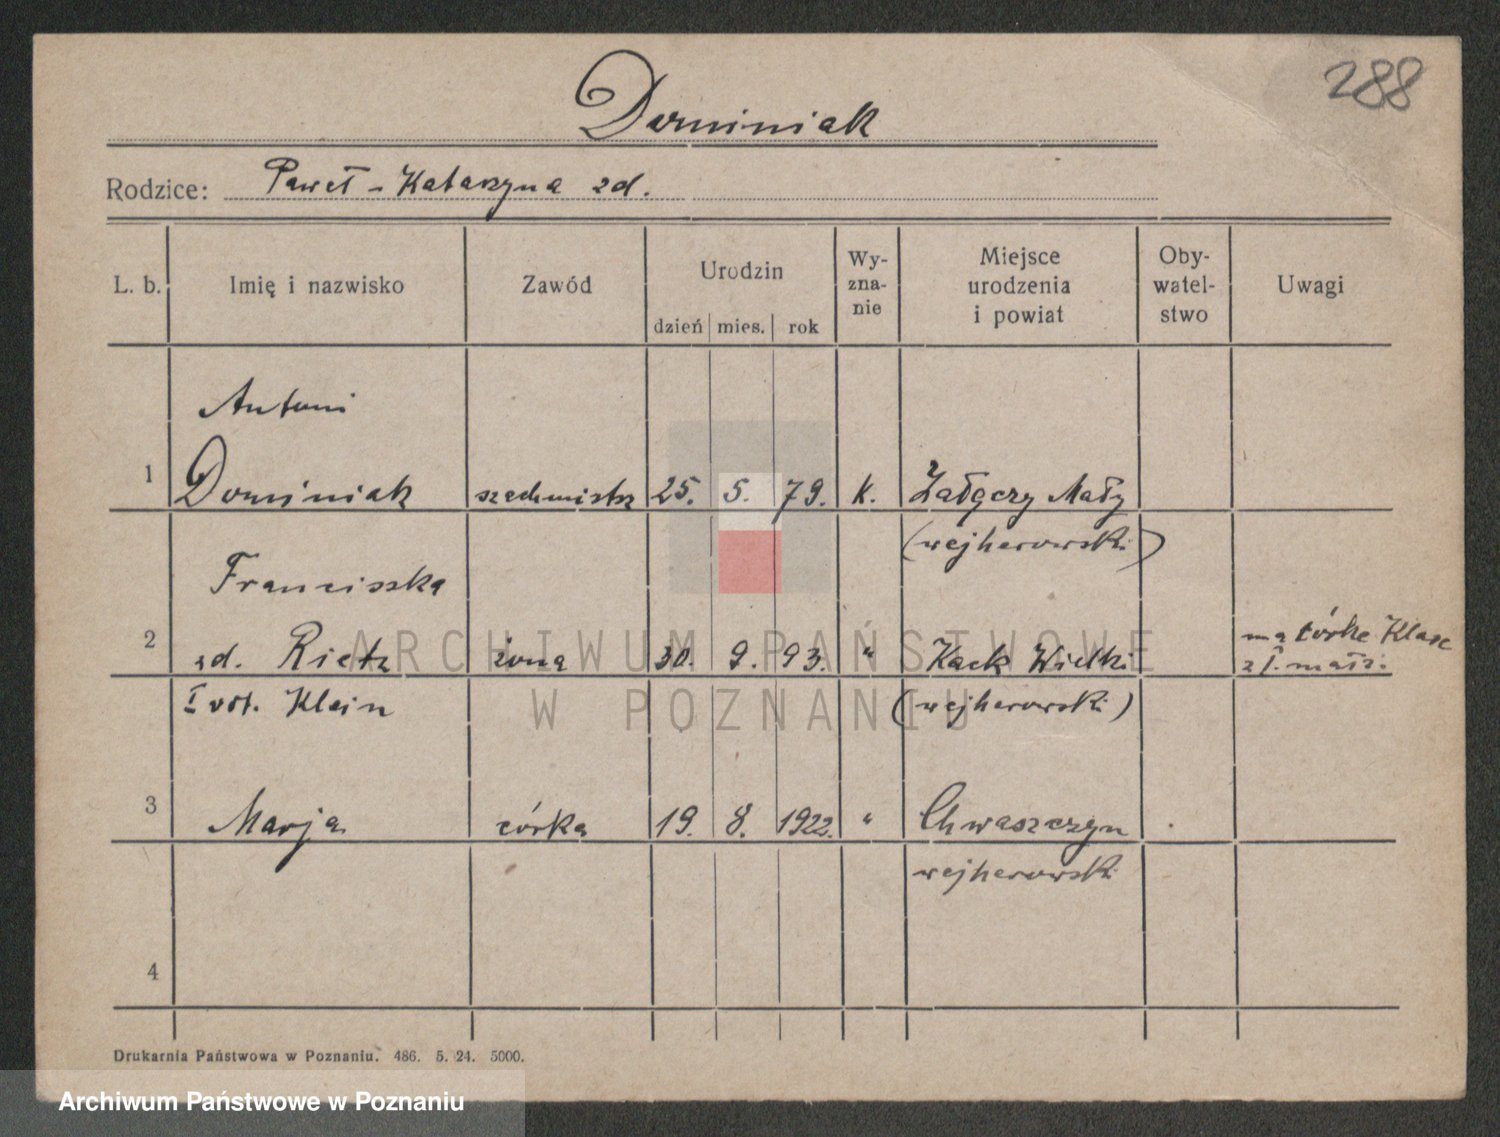 288
Dominiak
Rodzice: Paweł - Katarzyna zd.
L. b. Imię i nazwisko Zawód Urodzin dzień mies. rok Wy-zna-nie Miejsce urodzenia i powiat Oby-watel-stwo Uwagi
Antoni
1 Dominiak szachmistrz 25. 5. 79. k. Mały
(wejherowski)
Franciszka
2 zd. Rietz żona 30. 9. 93. " Kack Wielki ma córkę
z I. małż.
I vot. Klein (wejherowski)
3 Marja córka 19. 8. 1922. " Chwaszczyn
wejherowski
4
Drukarnia Państwowa w Poznaniu. 486. 5. 24. 5000.
ARCHIWUM PAŃSTWOWE
W POZNANIU
Archiwum Państwowe w Poznaniu